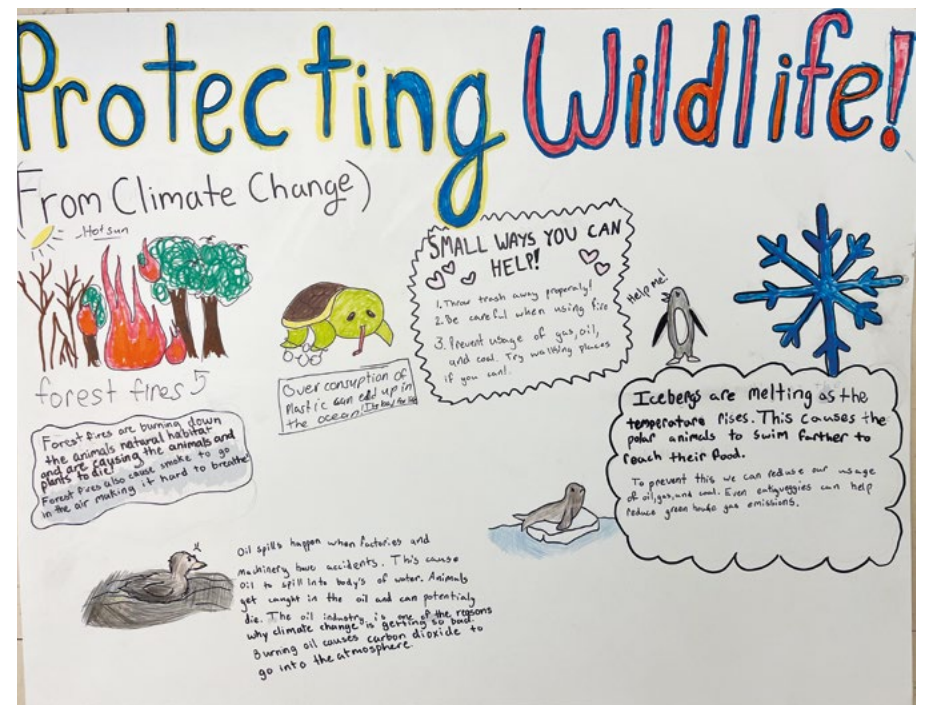 Protecting Wildlife!
(From Climate Change)
Hot sun
forest fires
Forest fires are burning down
the animals natural habitat
and are causing the animals and
plants to die!
Forest fires also cause smoke to go
in the air making it hard to breathe!
Over consuption of
Plastic can end up in
the ocean
SMALL WAYS YOU CAN
HELP!
1. Throw trash away properaly!
2. Be careful when using fire
3. Prevent usage of gas, oil,
and coal. Try walking places
if you can!
Help Me!
Icebergs are melting as the
temperature rises. This causes the
polar animals to swim farther to
reach their food.
To prevent this we can reduse our usage
of oil, gas, and coal. Even eating veggies can help
reduce green house gas emissions.
Oil spills happen when factories and
machinery have accidents. This cause
oil to spill into body's of water. Animals
get caught in the oil and can potentialy
die. The oil industry is one of the reasons
why climate change is getting so bad.
Burning oil causes carbon dioxide to
go into the atmosphere.